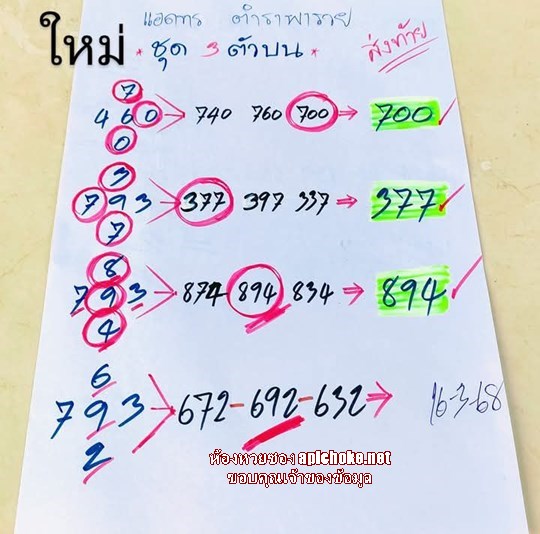 แอดการ ตำราพารวย
ใหม่
* ชุด 3 ตัวบน *
ส่งท้าย
7
4 6 0
0
740 760 700 ⇒ 700 ✓
3
7 9 3
7
377 397 337 ⇒ 377 ✓
8
7 9 3
4
874 894 834 ⇒ 894 ✓
6
7 9 3
2
672-692-632 ⇒ 16-3-68
ห้องหวยซอง apichoke.net
ขอบคุณเจ้าของข้อมูล